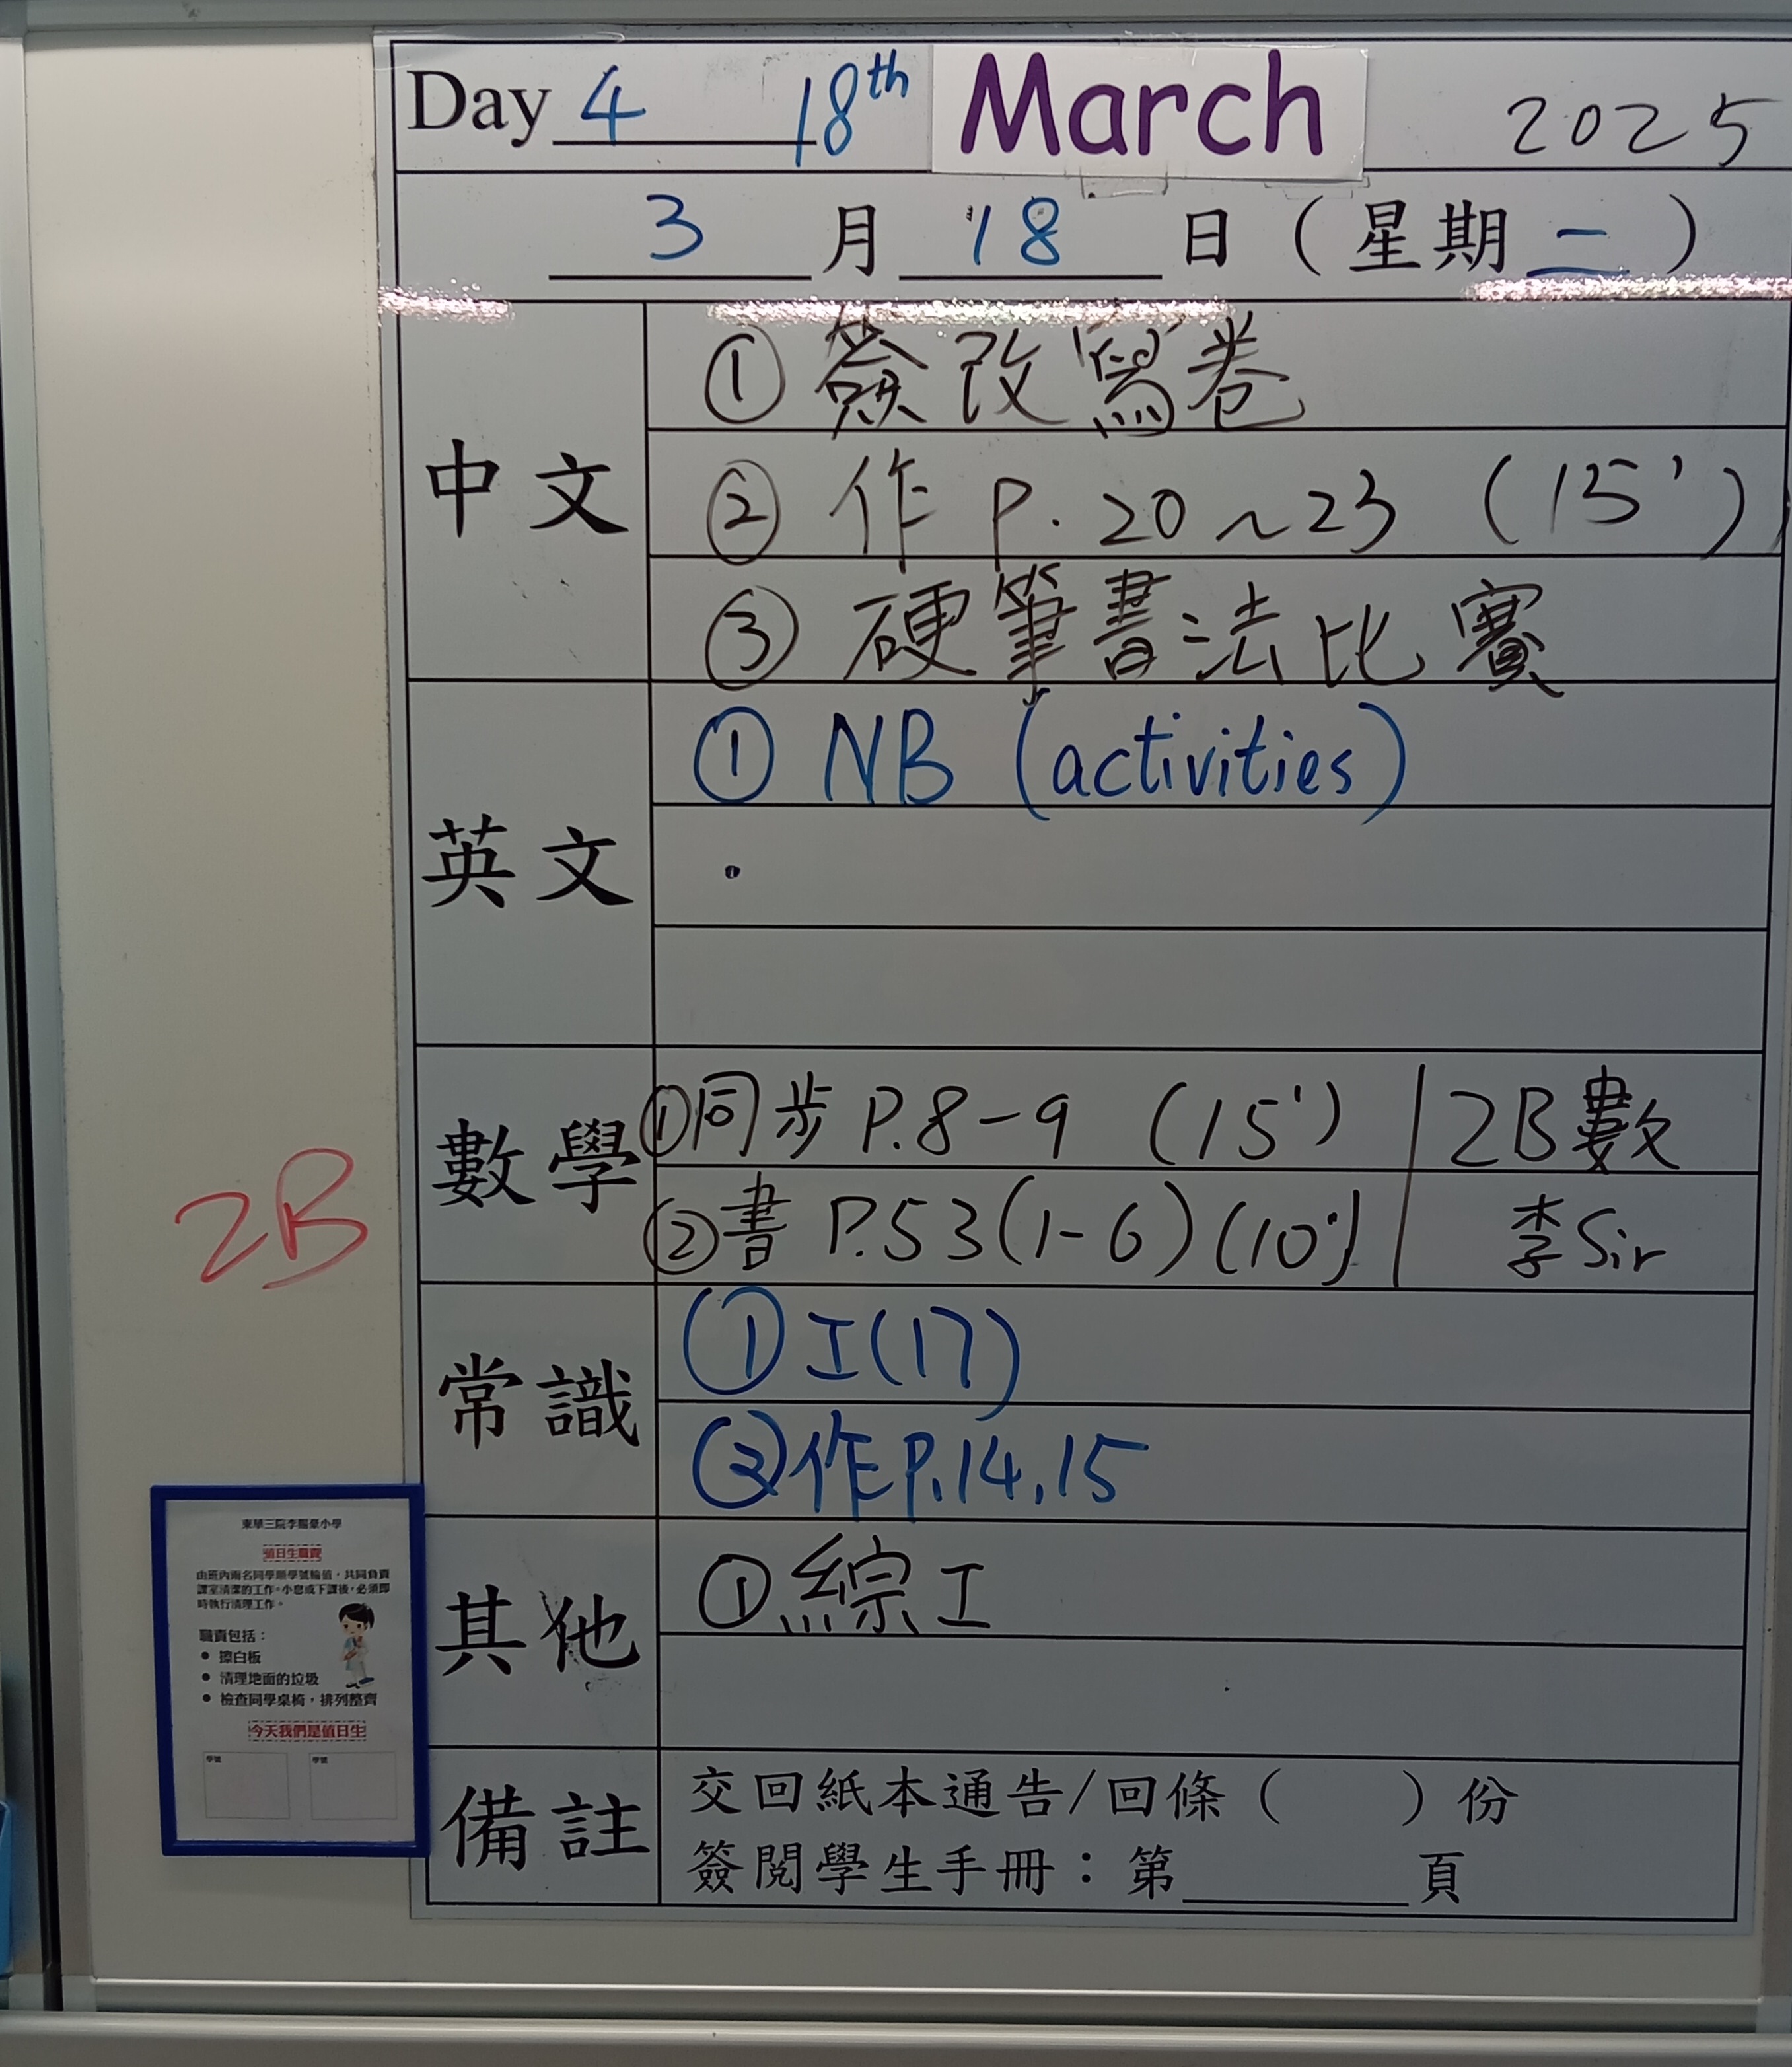 Day 4 18th March 2025
3 月 18 日 (星期二)
中文
① 簽改寫卷
② 作 P. 20~23 (15')
③ 硬筆書法比賽
英文
① NB (activities)
數學
①同步 P.8-9 (15') 2B數
②書 P.53(1-6)(10') 李Sir
2B
常識
① I(17)
②作P.14,15
其他
①綜工
備註
交回紙本通告/回條( )份
簽閱學生手冊:第 頁
東華三院李賜豪小學
值日生職責
由班內兩名同學順學號輪值,共同負責
課室清潔的工作。小息或下課後,必須即
時執行清理工作。
職責包括:
• 擦白板
• 清理地面的垃圾
• 檢查同學桌椅,排列整齊
今天我們是值日生
學號 學號